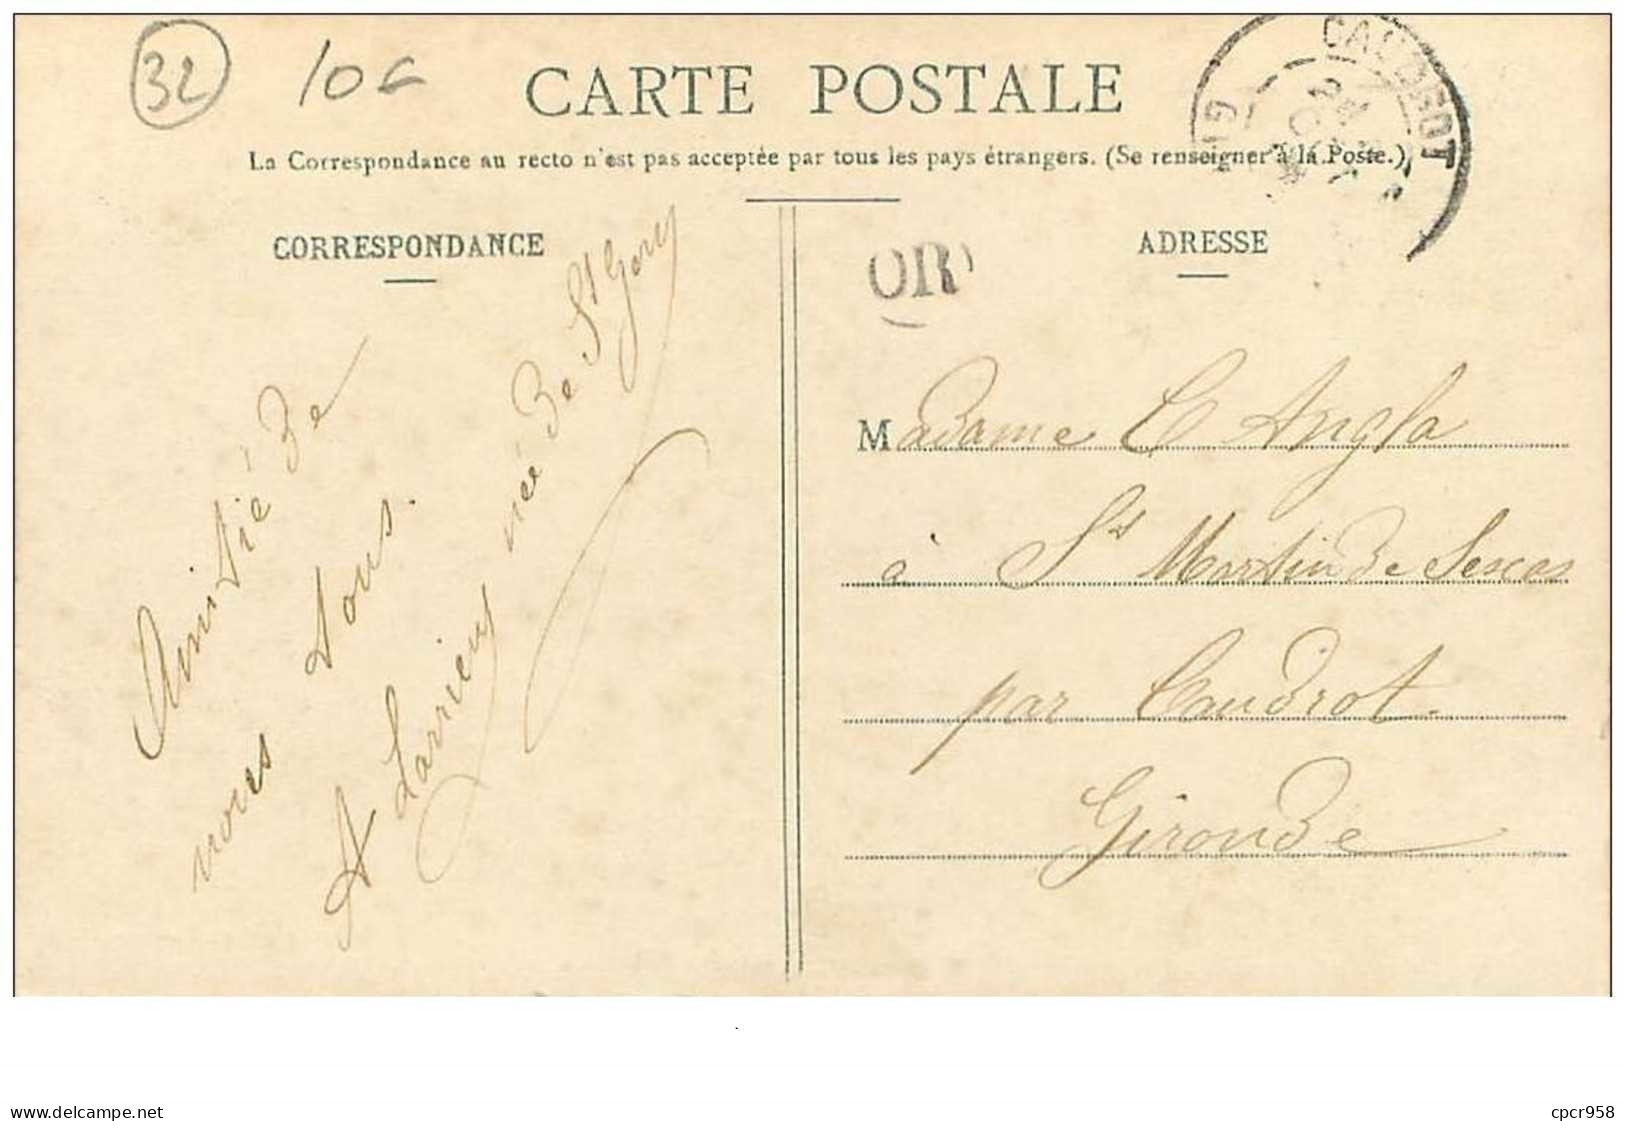 32
10 €
CARTE POSTALE
La Correspondance au recto n'est pas acceptée par tous les pays étrangers. (Se renseigner à la Poste.)
CAUDROT
CORRESPONDANCE
ADRESSE
OR
Amitié de
nous tous.
A Larrieu née de St Gery
Madame C Angla
à St Martin de Sescas
par Caudrot.
Gironde
www.delcampe.net
cpcr958